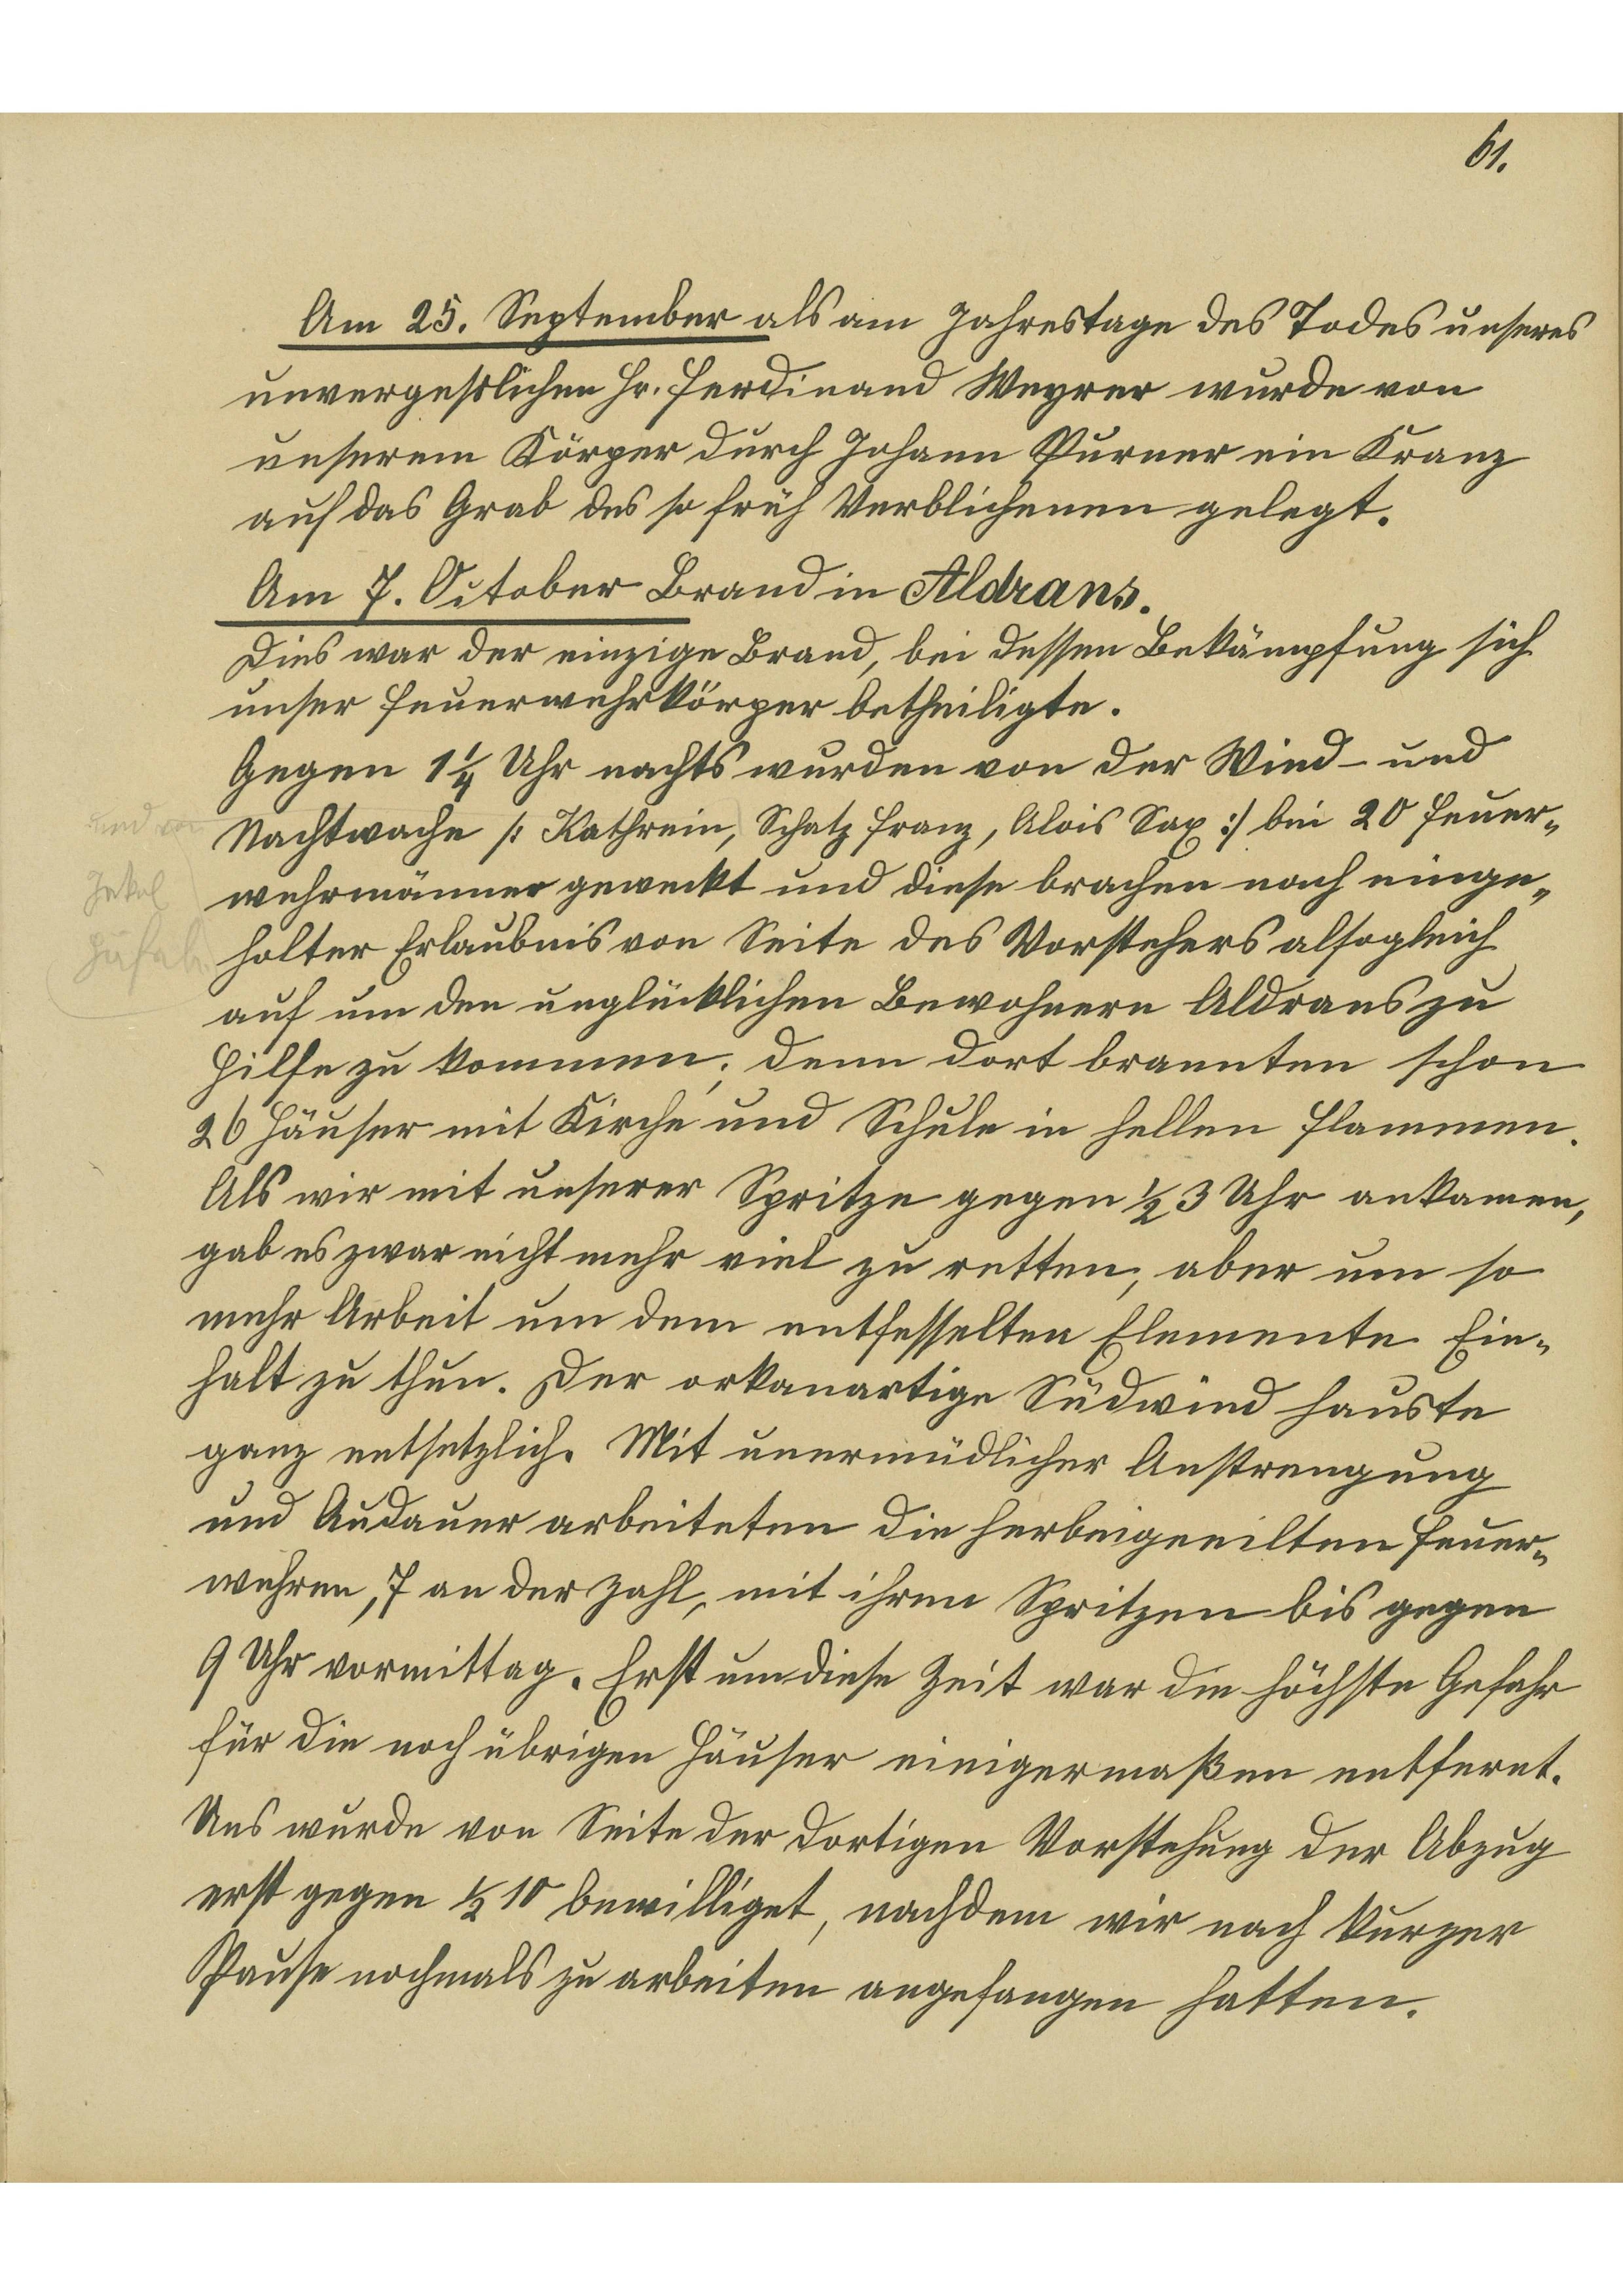 61.
Am 25. September als am Jahrestage des Todes unseres
unvergeßlichen Hr. Ferdinand Weyrer wurde von
unserem Körper durch Johann Purner ein Kranz
auf das Grab des so früh Verblichenen gelegt.
Am 7. October Brand in Aldrans.
Dies war der einzige Brand, bei dessen Bekämpfung sich
unser Feuerwehrkörper betheiligte.
Gegen 1 1/4 Uhr nachts wurden von der Wind- und
und von
Nachtwache /: Kathrein, Schatz Franz, Alois Sax :/ bei 20 Feuer-
wehrmänner geweckt und diese brachen nach einge-
holter Erlaubnis von Seite des Vorstehers alsogleich
auf um den unglücklichen Bewohnern Aldrans zu
Hilfe zu kommen; denn dort brannten schon
26 Häuser mit Kirche und Schule in hellen Flammen.
Als wir mit unserer Spritze gegen 1/2 3 Uhr ankamen,
gab es zwar nicht mehr viel zu retten, aber um so
mehr Arbeit um dem entfesselten Elemente Ein-
halt zu thun. Der orkanartige Südwind hauste
ganz entsetzlich. Mit unermüdlicher Anstrengung
und Audauer arbeiteten die herbeigeeilten Feuer-
wehren, 7 an der Zahl, mit ihren Spritzen bis gegen
9 Uhr vormittag. Erst um diese Zeit war die höchste Gefahr
für die noch übrigen Häuser einigermaßen entfernt.
Uns wurde von Seite der dortigen Vorstehung der Abzug
erst gegen 1/2 10 bewilliget, nachdem wir nach kurzer
Pause nochmals zu arbeiten angefangen hatten.